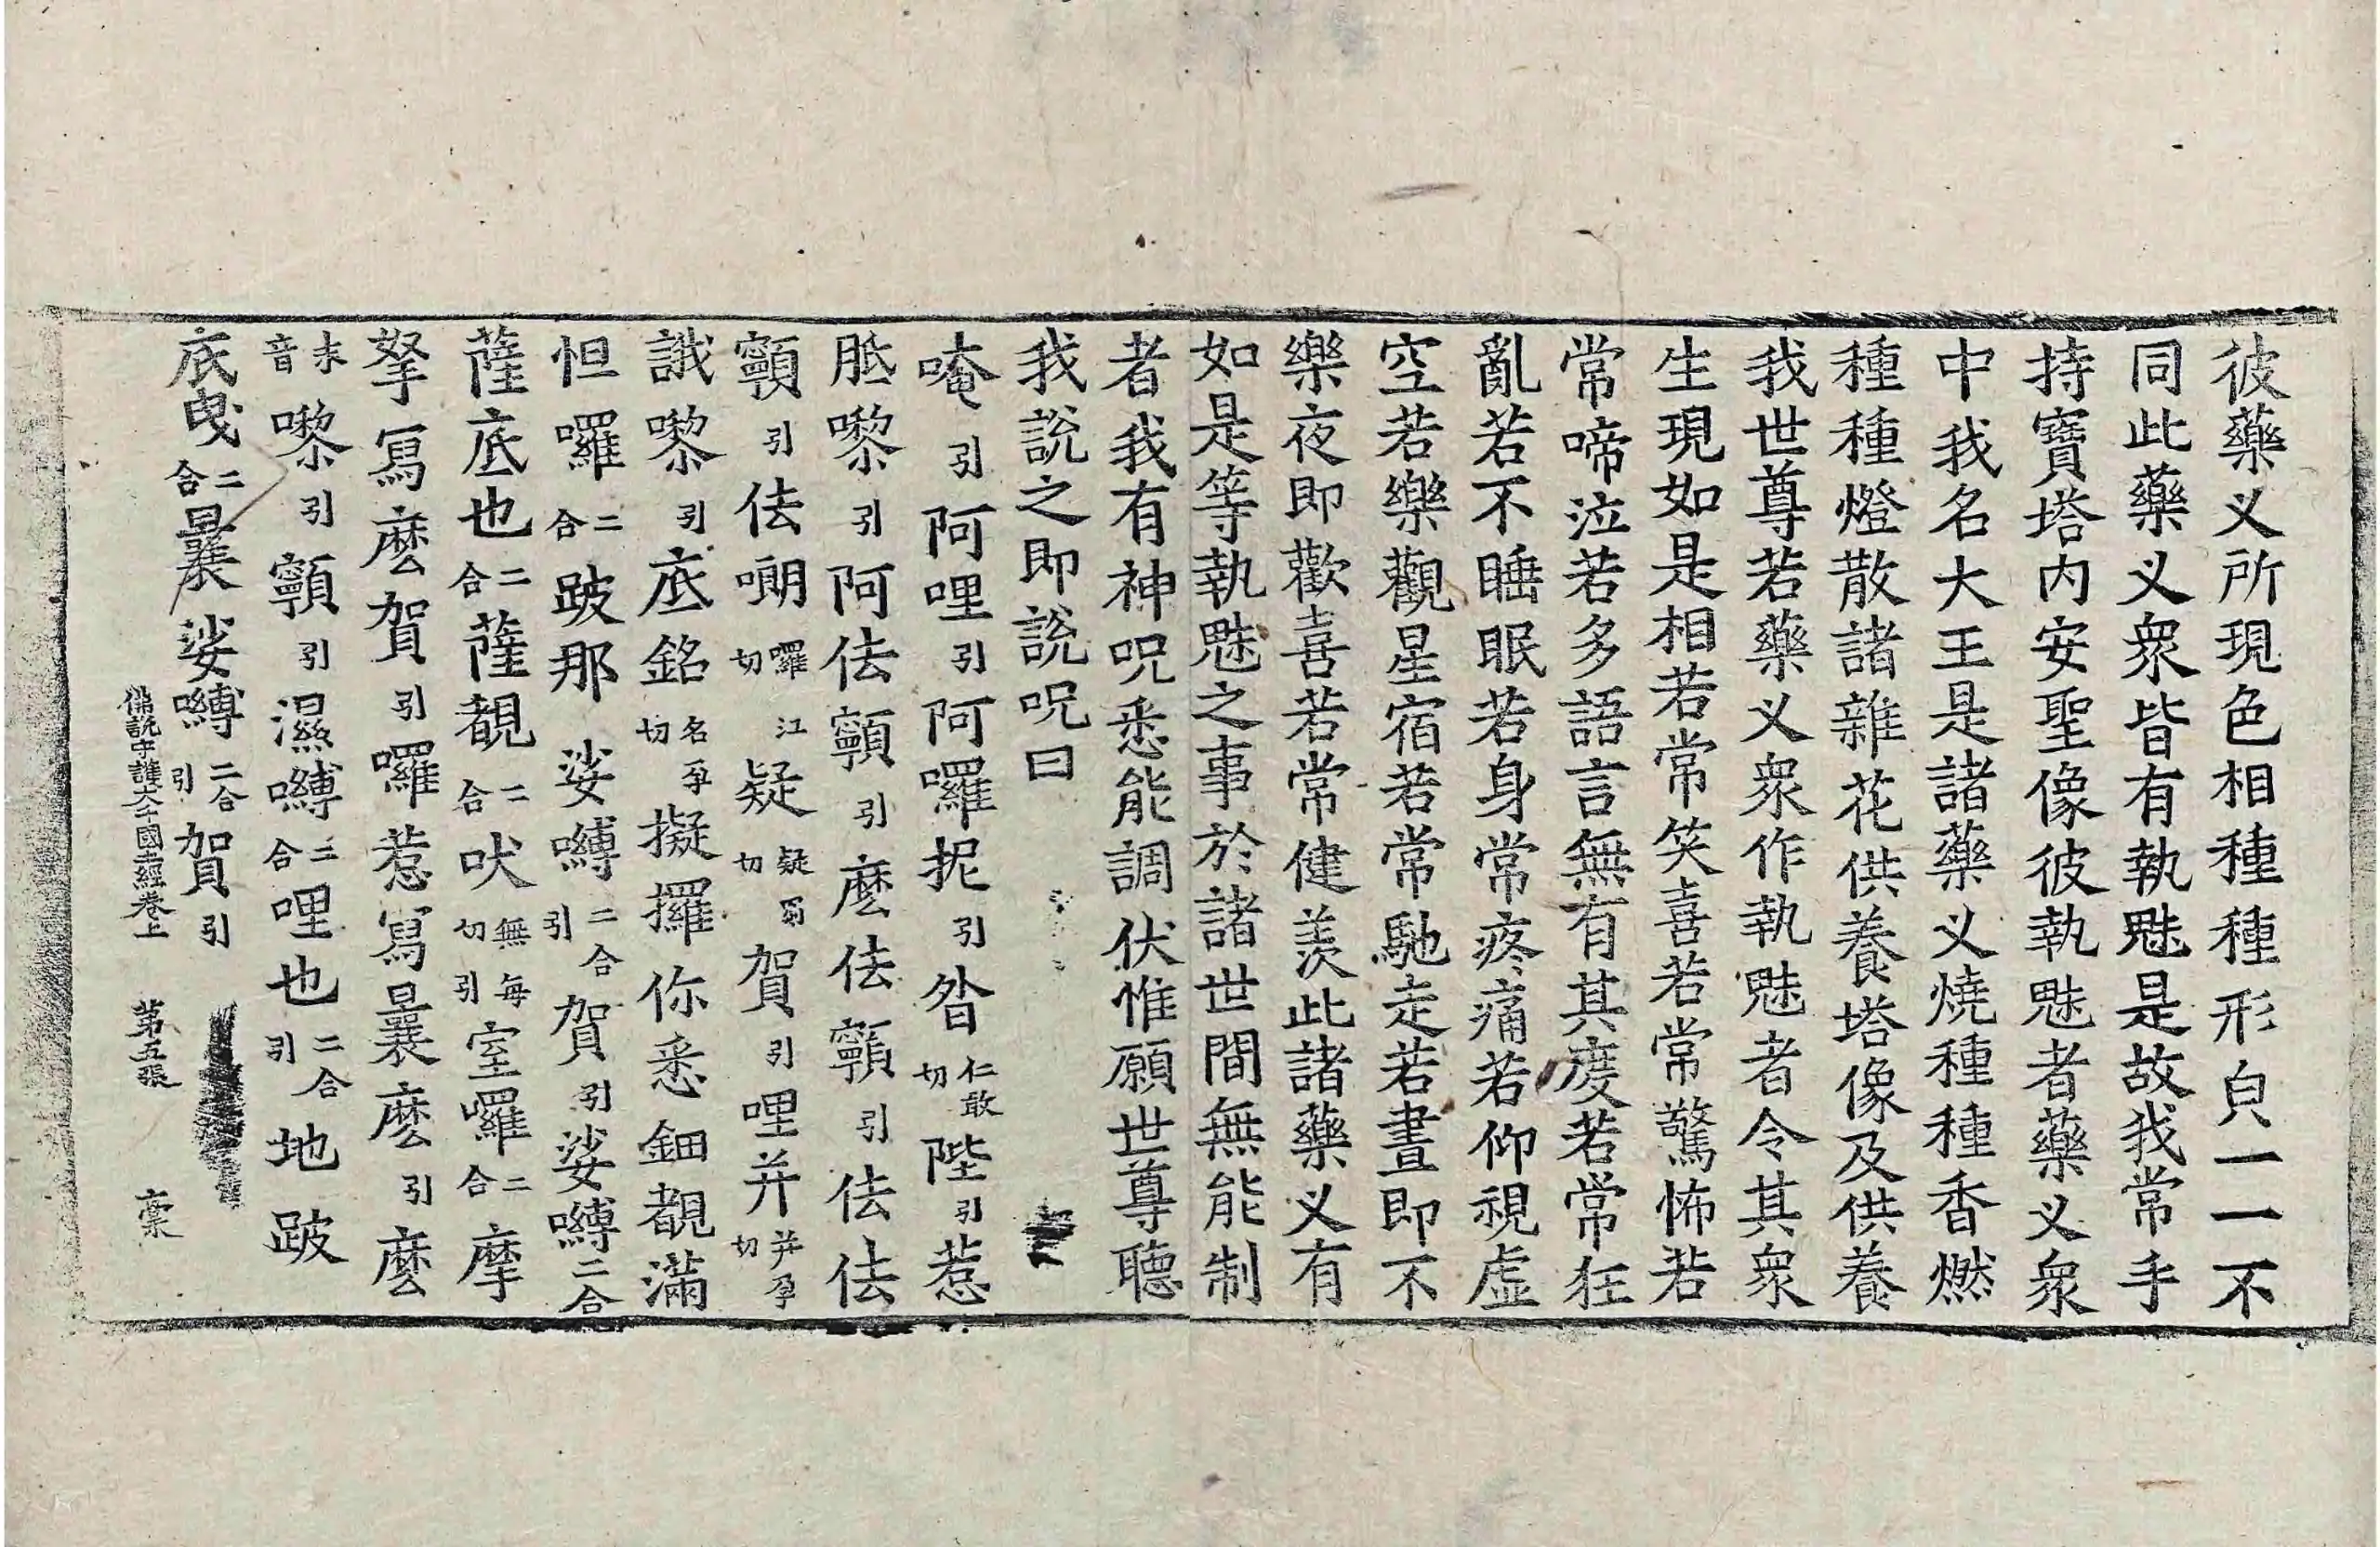 彼藥义所現色相種種形皃一一不
同此藥义衆皆有執魅是故我常手
持寶塔内安聖像彼執魅者藥义衆
中我名大王是諸藥义燒種種香燃
種種燈散諸雜花供養塔像及供養
我世尊若藥义衆作執魅者令其衆
生現如是相若常笑喜若常驚怖若
常啼泣若多語言無有其度若常狂
亂若不睡眠若身常疼痛若仰視虛
空若樂觀星宿若常馳走若晝即不
樂夜即歡喜若常健羡此諸藥义有
如是等執魅之事於諸世間無能制
者我有神呪悉能調伏惟願世尊聽
我說之即說呪曰
唵引阿哩引阿囉抳引昝仁敢切陛引惹
胝嚟引阿佉顙引麽佉顙引佉佉
顙引佉嘲囉江切疑疑蒭切賀引哩并并孕切
誐嚟引底銘名孕切擬攞你悉鈿覩滿
怛囉二合跛那娑嚩二合引賀引娑嚩二合
薩底也二合薩覩二合吠無每切引室囉二合摩
拏寫麽賀引囉惹寫曩麽引麽
末音嚟引顙引濕嚩二合哩也二合引地跛
底曳二合曩娑嚩二合引賀引
佛說守護大千國土經卷上 第五張 稾